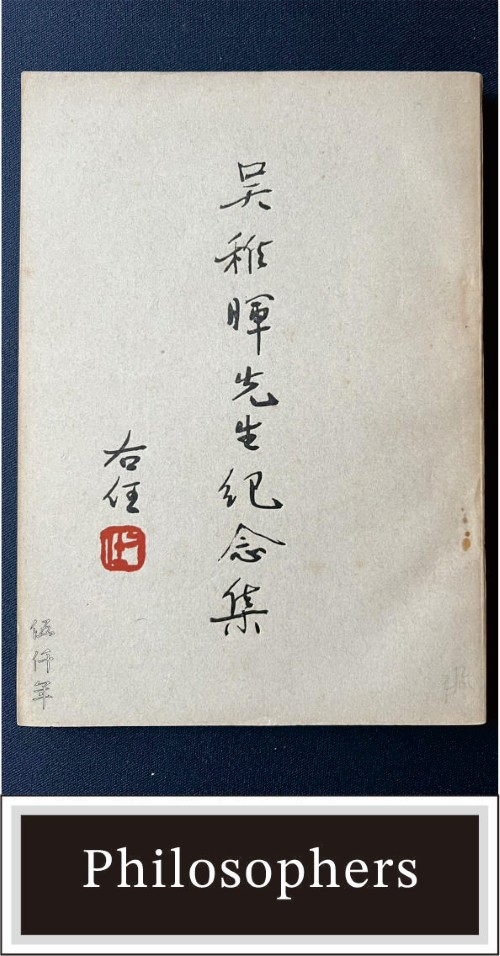 吴稚暉先生纪念集
右任
Philosophers